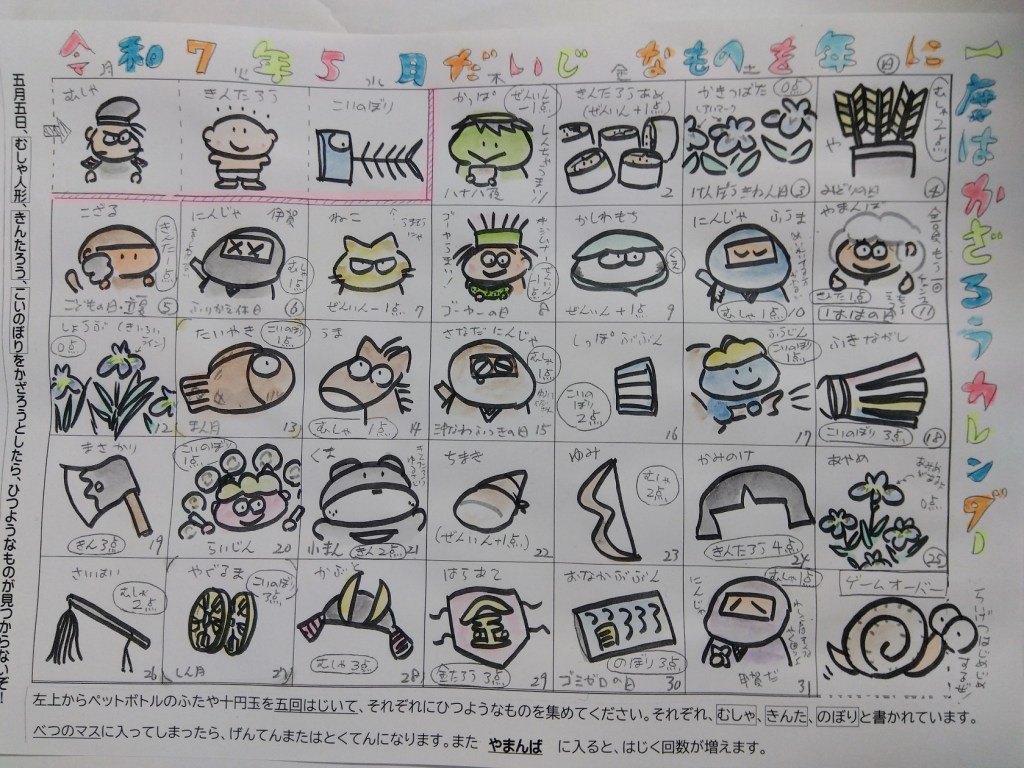 令和7年5月だいじなものを年に
一度はかざろうカレンダー
月 火 水 木 金 土 日
五月五日、むしゃ人形、きんたろう、こいのぼりをかざろうとしたら、ひつようなものが見つからないぞ！
むしゃ
きんたろう
こいのぼり
かっぱ
ぜんいん
ー1点
しんちゃうまい
八十八夜
きんたろうあめ
(ぜんいん+1点)
2
かきつばた
0点
けんぽうきねん日 3
や
むしゃ
みどりの日
4
こざる
きんたー1点
こどもの日・立夏 5
にんじゃ 伊賀
むしゃ
ー1点
ふりかえ休日 6
ねこ
ぜんいんー1点 7
ゴーヤーうまい!
ゴーヤーの日 8
かしわもち
ぜんいん+1点 9
にんじゃ ふうま
むしゃー1点 10
やまんば
きんた1点
11
しょうぶ
0点
12
たいやき
こいのぼり
1点
まん月 13
うま
むしゃ 1点 14
さなだ にんじゃ
むしゃ
ー1点
沖なわふっきの日 15
しっぽぶぶん
こいの
ぼり
2点
16
ふうじん
こいのぼり
1点
17
ふきながし
こいのぼり 3点
18
まさかり
きん3点 19
こいのぼり
1点
らいじん 20
くま
小まん きん2点 21
ちまき
(ぜんいん+1点) 22
ゆみ
むしゃ
2点
23
かみのけ
きんたろう 4点
24
あやめ
0点
25
さいはい
むしゃ
2点
26
やぐるま
こいのぼり
3点
しん月 27
かぶと
むしゃ3点 28
はらあて
金
金たろう3点 29
おなかぶぶん
のぼり3点
ゴミゼロの日 30
にんじゃ
むしゃー1点
甲賀 31
ゲームオーバー
左上からペットボトルのふたや十円玉を五回はじいて、それぞれにひつようなものを集めてください。それぞれ、むしゃ、きんた、のぼりと書かれています。
べつのマスに入ってしまったら、げんてんまたはとくてんになります。また やまんば に入ると、はじく回数が増えます。